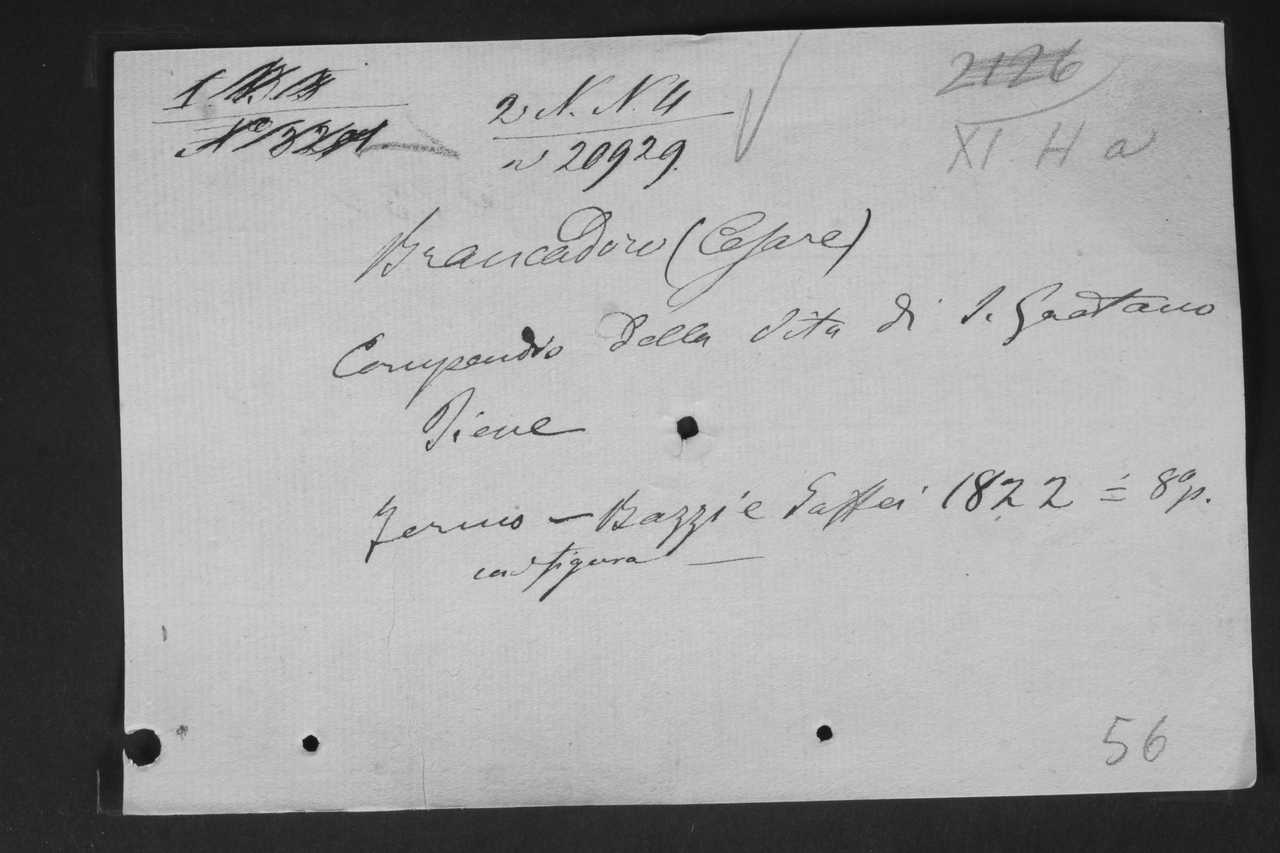 2 N. N. 4
n 20929.
2126
XI H a
Brancadoro (Cesare)
Compendio della Vita di S. Gaetano
Tiene
Fermo — Bazzi e 1822 = 8° p.
con figura —
56